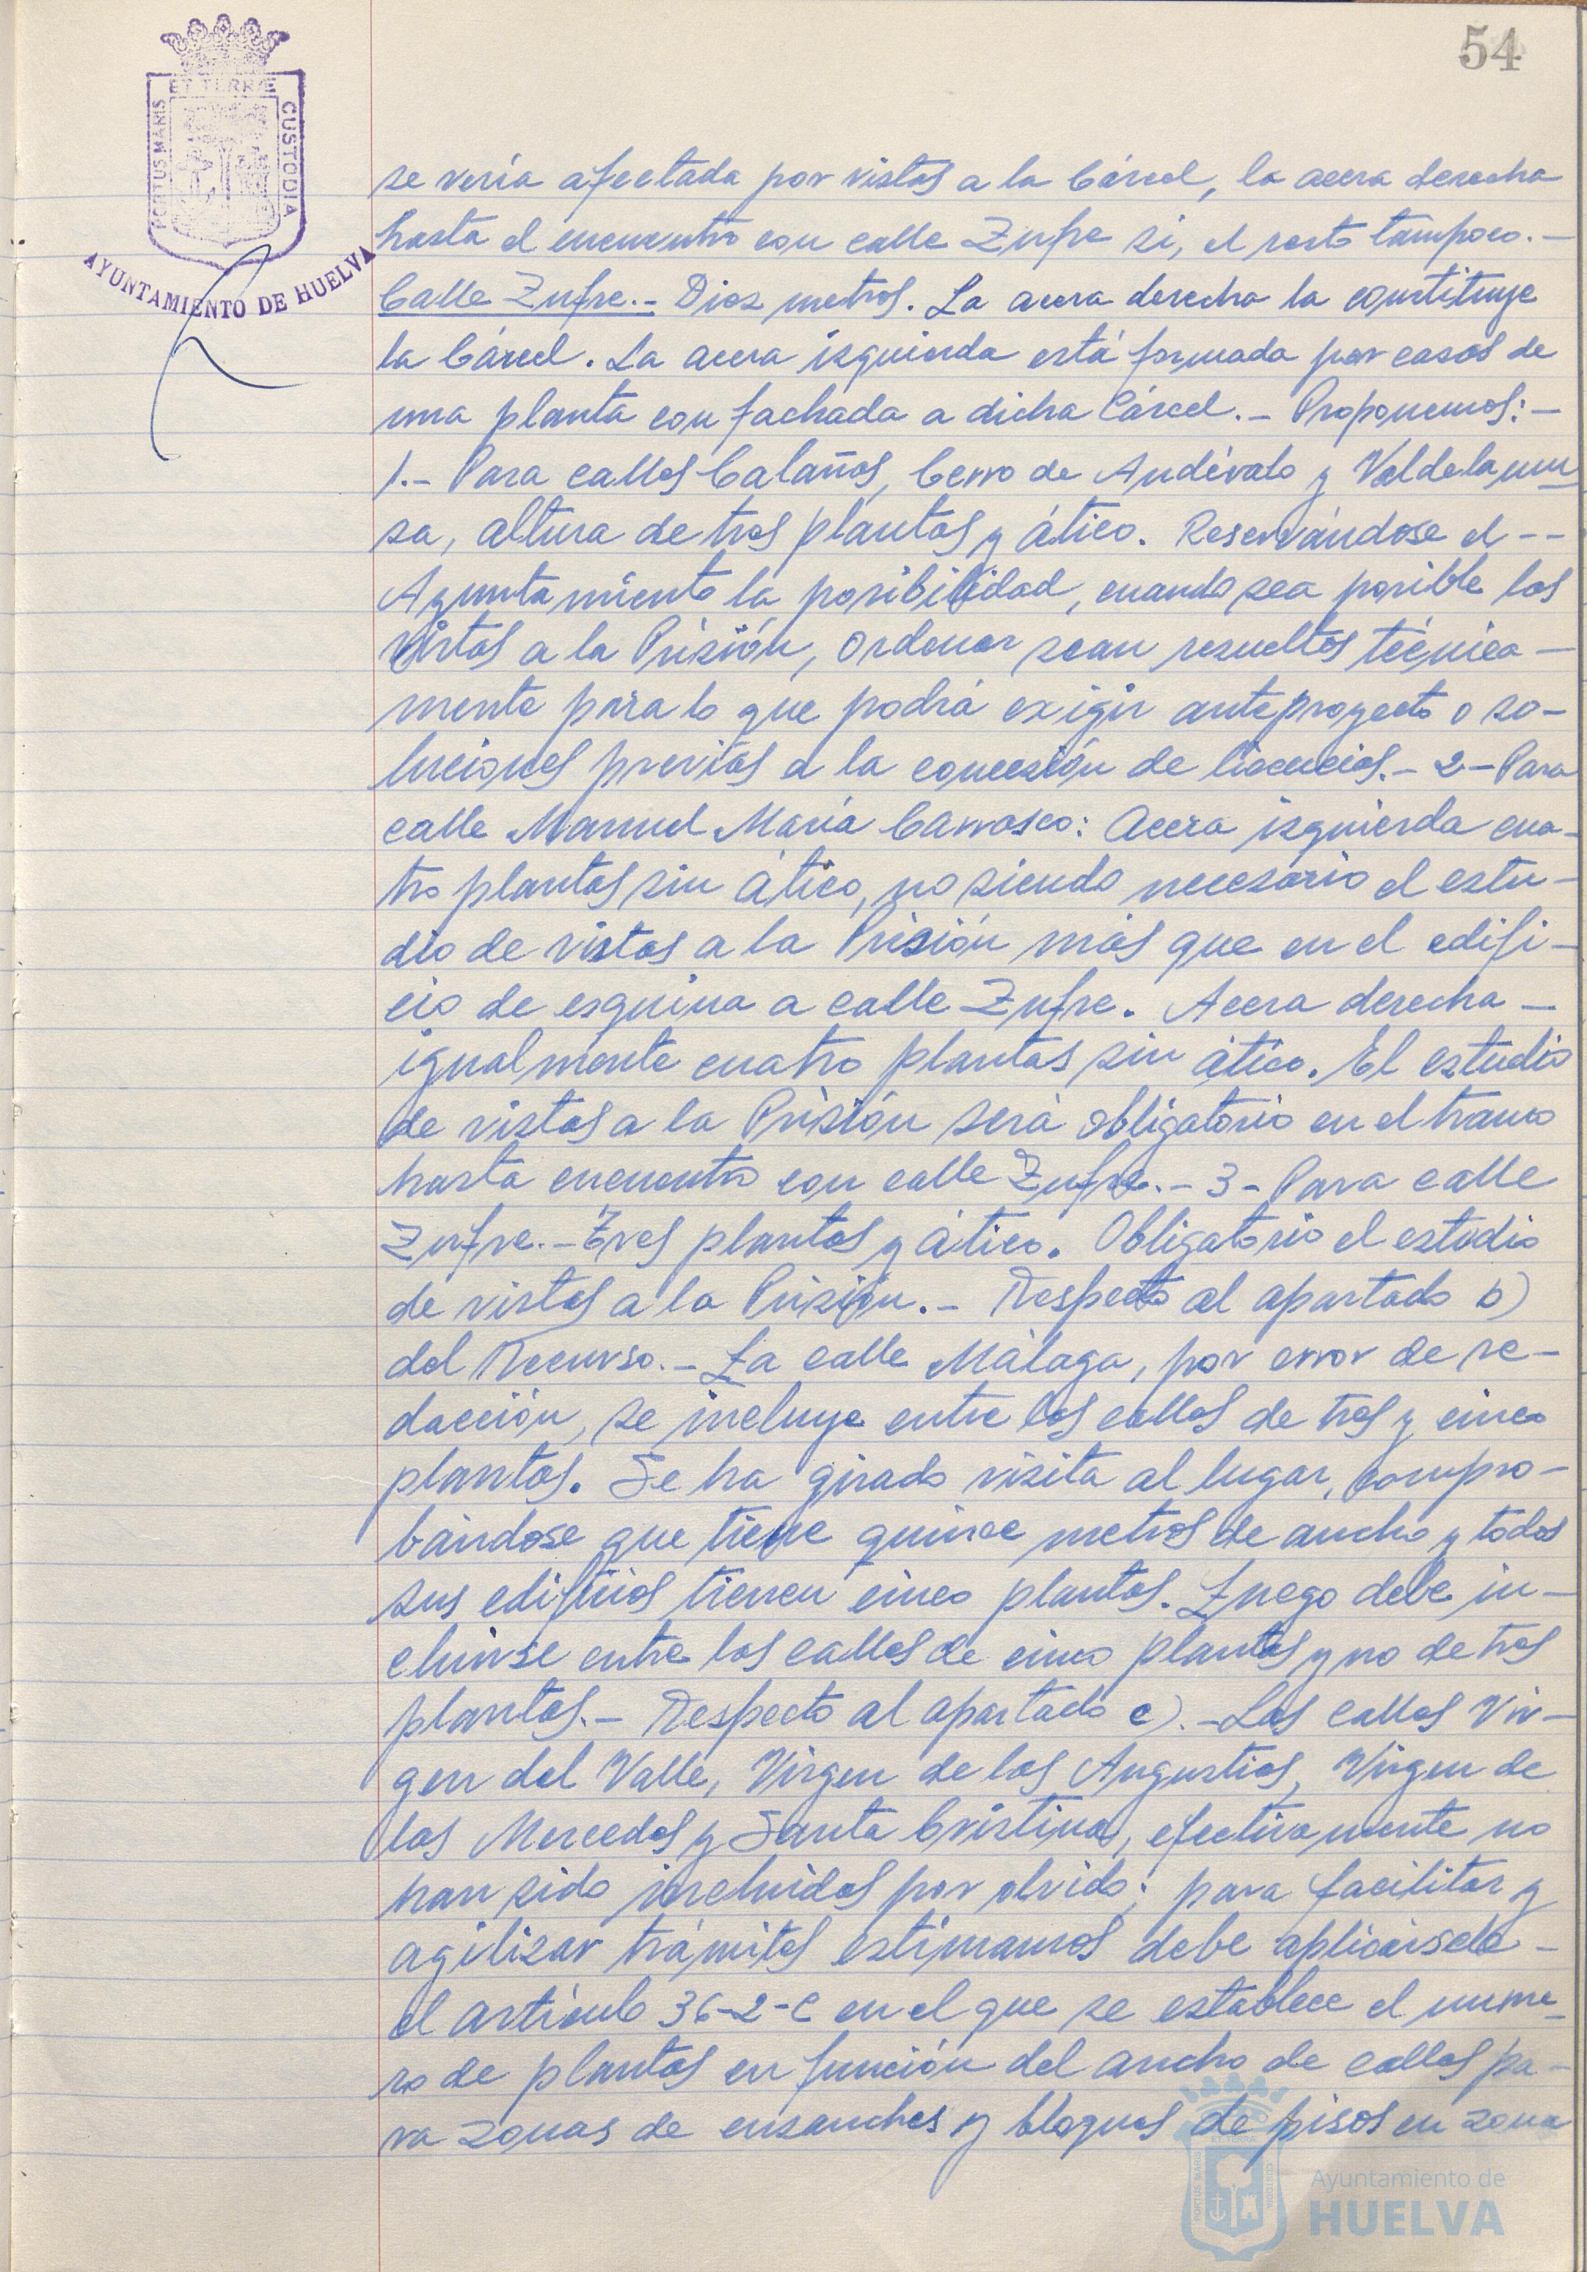 54
ET TERRÆ
PORTUS MARIS
CUSTODIA
AYUNTAMIENTO DE HUELVA
se vería afectada por vistas a la Cárcel, la acera derecha
hasta el encuentro con calle Zufre si, el resto tampoco.-
Calle Zufre.- Diez metros. La acera derecha la constituye
la Cárcel. La acera izquierda está formada por casas de
una planta con fachada a dicha Cárcel.- Proponemos:-
1.- Para calles Calañas, Cerro de Andévalo y Valdelamu
sa, altura de tres plantas y ático. Reservándose el --
Ayuntamiento la posibilidad, cuando sea posible las
vistas a la Prisión, ordenar sean resueltas técnica-
mente para lo que podrá exigir anteproyecto o so-
luciones previas a la concesión de licencias.- 2-Para
calle Manuel María Carrasco: Acera izquierda cua-
tro plantas sin ático, no siendo necesario el estu-
dio de vistas a la Prisión más que en el edifi-
cio de esquina a calle Zufre. Acera derecha -
igualmente cuatro plantas sin ático. El estudio
de vistas a la Prisión será obligatorio en el tramo
hasta encuentro con calle Zufre.- 3- Para calle
Zufre.- Tres plantas y ático. Obligatorio el estudio
de vistas a la Prisión.- Respecto al apartado b)
del Recurso.- La calle Málaga, por error de re-
dacción, se incluye entre las calles de tres y cinco
plantas. Se ha girado visita al lugar, compro-
bándose que tiene quince metros de ancho y todos
sus edificios tienen cinco plantas. Luego debe in-
cluirse entre las calles de cinco plantas y no de tres
plantas.- Respecto al apartado c).- Las calles Vir-
gen del Valle, Virgen de las Angustias, Virgen de
las Mercedes y Santa Cristina, efectivamente no
han sido incluidas por olvido; para facilitar y
agilizar trámites estimamos debe aplicársele -
el artículo 36-2-C en el que se establece el núme-
ro de plantas en función del ancho de calles pa-
ra zonas de ensanches y bloques de pisos en zona
PORTUS MARIS
CUSTODIA
Ayuntamiento de
HUELVA